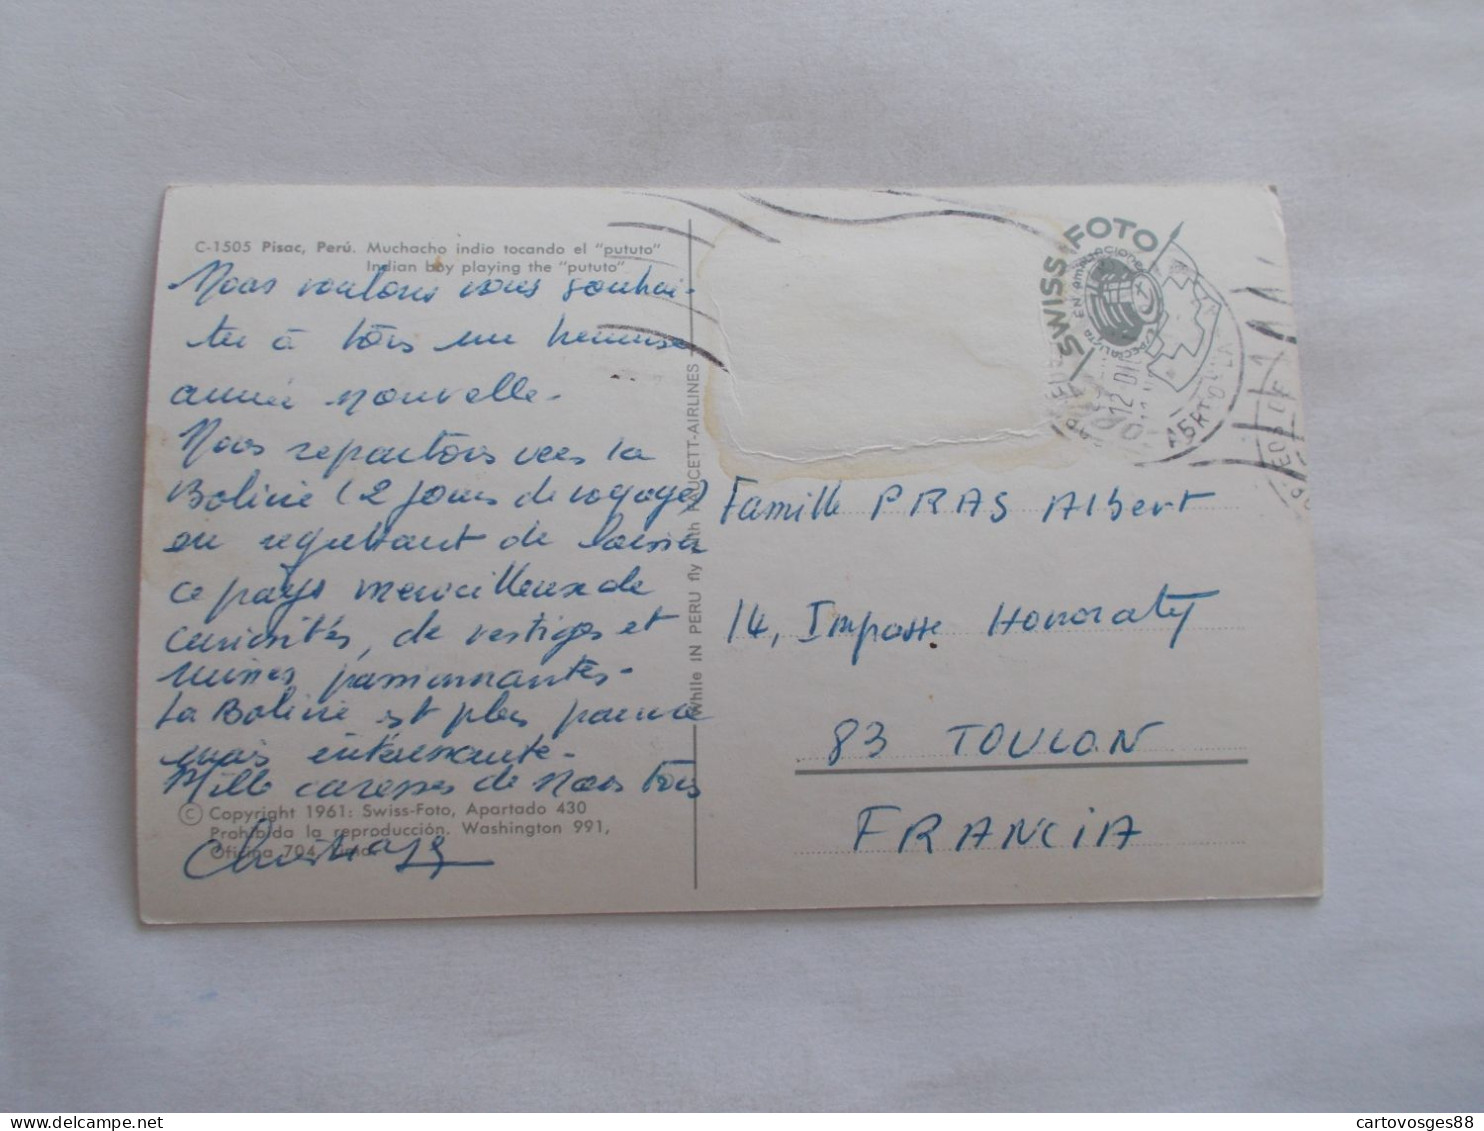 C-1505 Pisac, Perú. Muchacho indio tocando el "pututo"
Indian boy playing the "pututo"
Nous voulons vous souhai-
ter à tous une heureuse
année nouvelle.
Nous repartons vers la
Bolivie (2 jours de voyage)
en regrettant de laisser
ce pays merveilleux de
curiosités, de vestiges et
ruines passionnantes.
La Bolivie est plus pauvre
mais intéressante.
Mille caresses de nous tous
© Copyright 1961: Swiss-Foto, Apartado 430
Prohibida la reproducción. Washington 991,
Oficina 704, Lima.
While IN PERU fly with FAUCETT-AIRLINES
SWISS-FOTO
ESPECIALISTA EN AMPLIACIONES
12 DIC
Famille PRAS Albert
14, Impasse Honoraty
83 TOULON
FRANCIA
cartovosges88